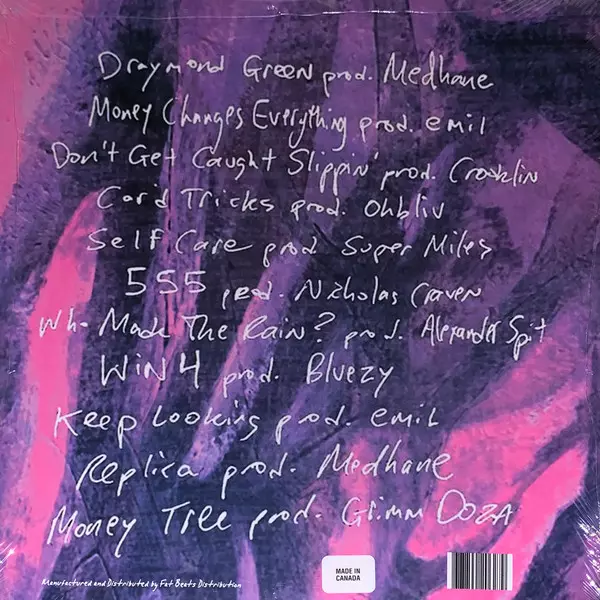 Draymond Green prod. Medhane
Money Changes Everything prod. emil
Don't Get Caught Slippin' prod. Crooklin
Card Tricks prod. Ohbliv
Self Care prod Super Miles
555 prod. Nicholas Craven
Who Made The Rain? prod. Alexander Spit
WiN 4 prod. Bluezy
Keep Looking prod. emil
Replica prod. Medhane
Money Tree prod. Grimm DOZA
Manufactured and Distributed by Fat Beats Distribution
MADE IN
CANADA